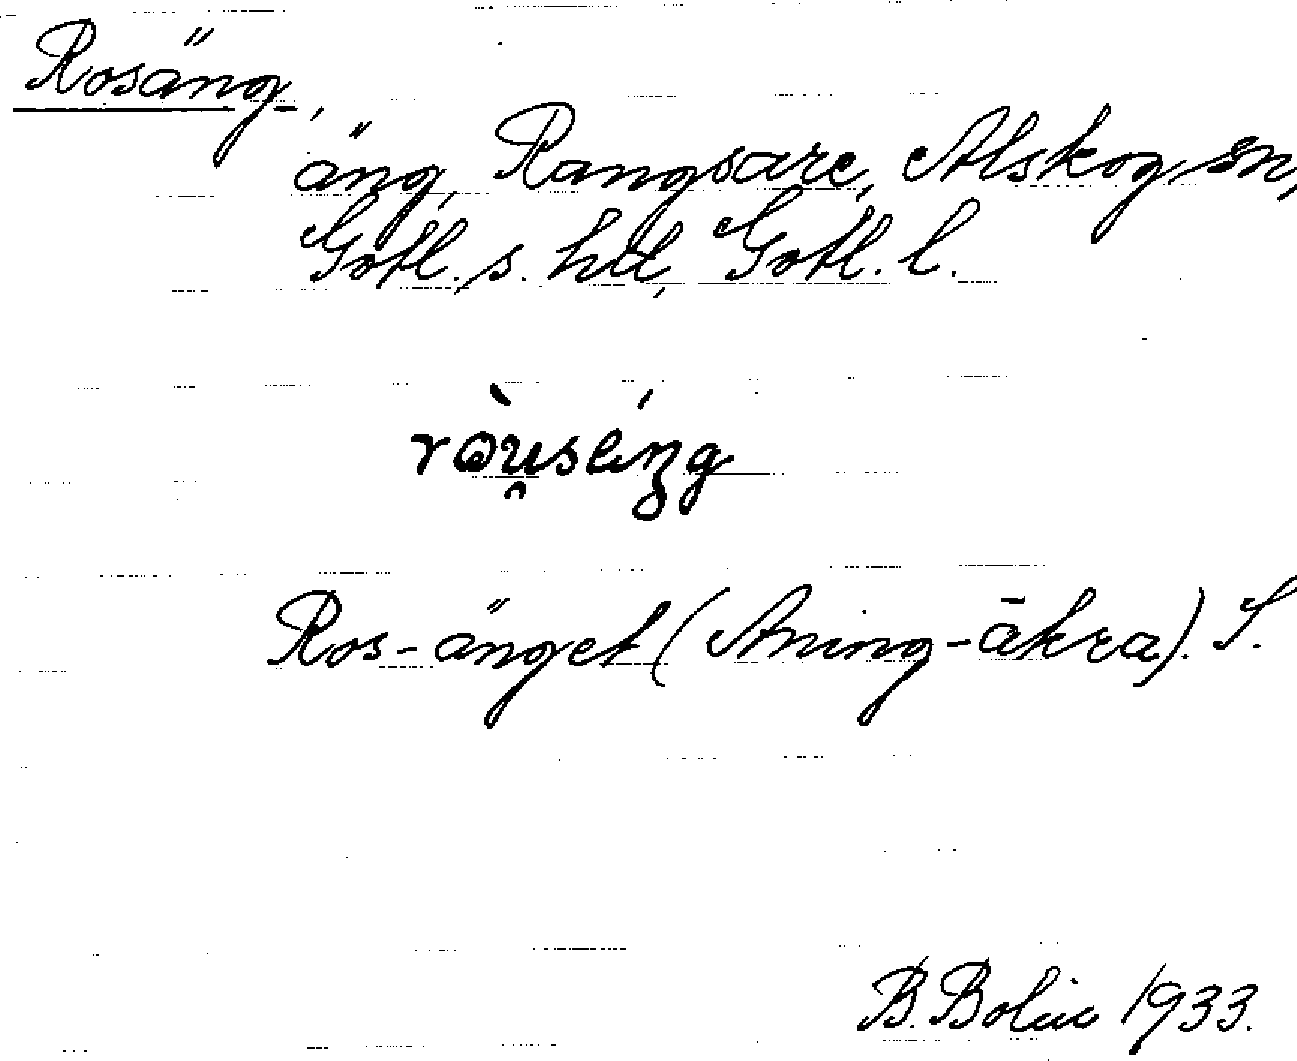 Rosäng,
äng, Rangsare, Alskog sn,
Gotl. s. hd, Gotl. l.
Ros-änget (Aning-åkra). S.
B. Bolin 1933.